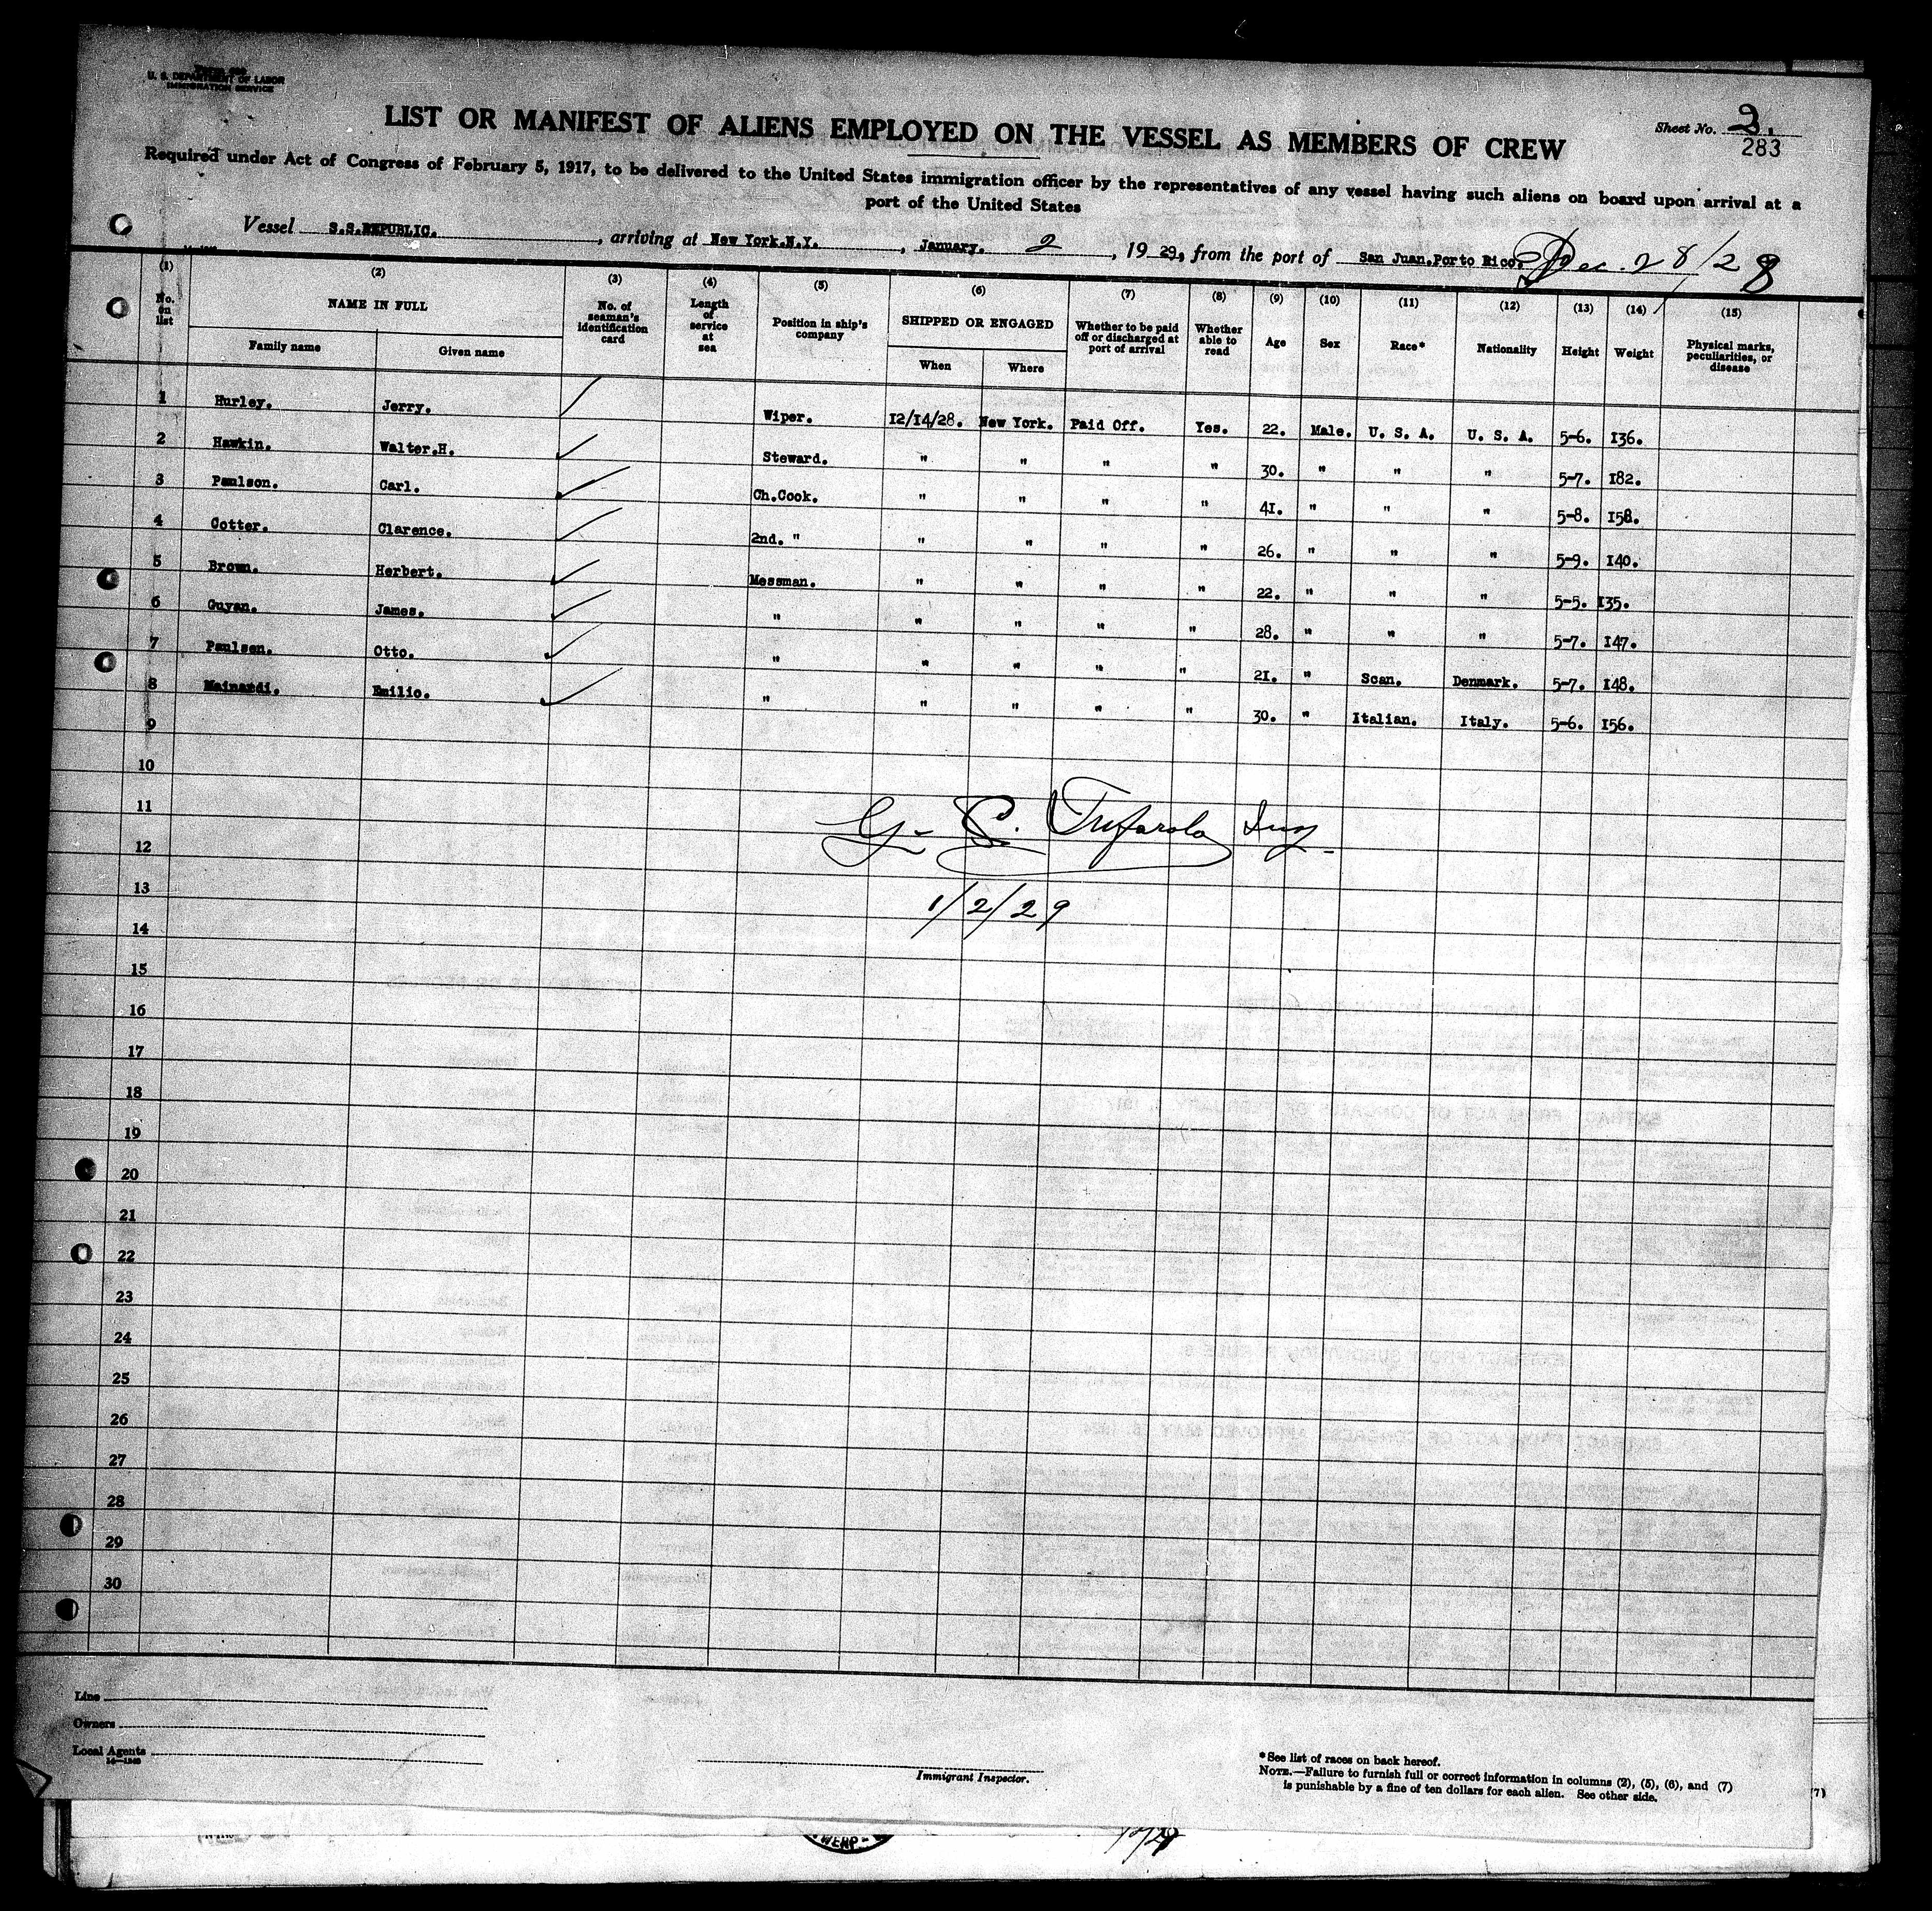 U. S. DEPARTMENT OF LABOR
IMMIGRATION SERVICE
Sheet No. 2.
283
LIST OR MANIFEST OF ALIENS EMPLOYED ON THE VESSEL AS MEMBERS OF CREW
Required under Act of Congress of February 5, 1917, to be delivered to the United States immigration officer by the representatives of any vessel having such aliens on board upon arrival at a
port of the United States
Vessel S.S.REPUBLIC. , arriving at New York.N.Y. , January. 2 , 19 29, from the port of San Juan.Porto Rico. Dec. 28/28
(1) (2) (3) (4) (5) (6) (7) (8) (9) (10) (11) (12) (13) (14) (15)
No. on list NAME IN FULL Family name Given name No. of seaman's identification card Length of service at sea Position in ship's company SHIPPED OR ENGAGED When Where Whether to be paid off or discharged at port of arrival Whether able to read Age Sex Race* Nationality Height Weight Physical marks, peculiarities, or disease
1 Hurley. Jerry. Wiper. 12/14/28. New York. Paid Off. Yes. 22. Male. U. S. A. U. S. A. 5-6. 136.
2 Hawkin. Walter.H. Steward. " " " " 30. " " " 5-7. 182.
3 Paulson. Carl. Ch.Cook. " " " " 41. " " " 5-8. 158.
4 Cotter. Clarence. 2nd. " " " " " 26. " " " 5-9. 140.
5 Brown. Herbert. Messman. " " " " 22. " " " 5-5. 135.
6 Guyan. James. " " " " " 28. " " " 5-7. 147.
7 Paulsen. Otto. " " " " " 21. " Scan. Denmark. 5-7. 148.
8 Mainardi. Emilio. " " " " " 30. " Italian. Italy. 5-6. 156.
9
10
11
12
G. S. Insp
13
1/2/29
14
15
16
17
18
19
20
21
22
23
24
25
26
27
28
29
30
Line
Owners
Local Agents
Immigrant Inspector.
*See list of races on back hereof.
NOTE.—Failure to furnish full or correct information in columns (2), (5), (6), and (7)
is punishable by a fine of ten dollars for each alien. See other side.